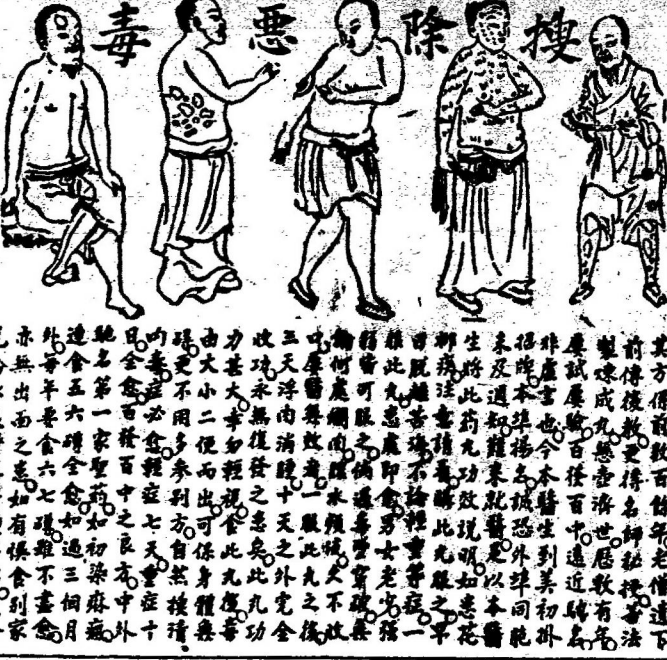 搜除惡毒
其方傳前數百餘年老僧遺下
前傳後教更得名師秘授善法
製煉成丸懸壺濟世歷數有年
屢試屢驗百發百中遠近馳名
非虛言也今本醫生到美初掛
招牌本埠揚名誠恐外埠同胞
未及週知難來就醫是以本醫
生將此葯丸功效說明如患花
柳疾注意請購此丸服之早
日脫離苦海不論輕重等症一
服此丸患處即愈男女老少強
弱皆可服之倘遇毒瘡穿破無
論何處爛肉膿水頻流久不收
口屢醫無效者一服此丸之後
三天浮肉消腫十天之外完全
收功永無復發之患矣此丸功
力甚大幸勿輕視食此丸後毒
由大小二便而出可保身體無
碍更不用多參別方自然搜清
內毒症必愈輕症七天重症十
日全愈百發百中之良方中外
馳名第一家聖葯如初染麻瘋
連食五六罇全愈如過三個月
外每年要食六七罇雖不盡愈
亦無出面之患如有誤食別家